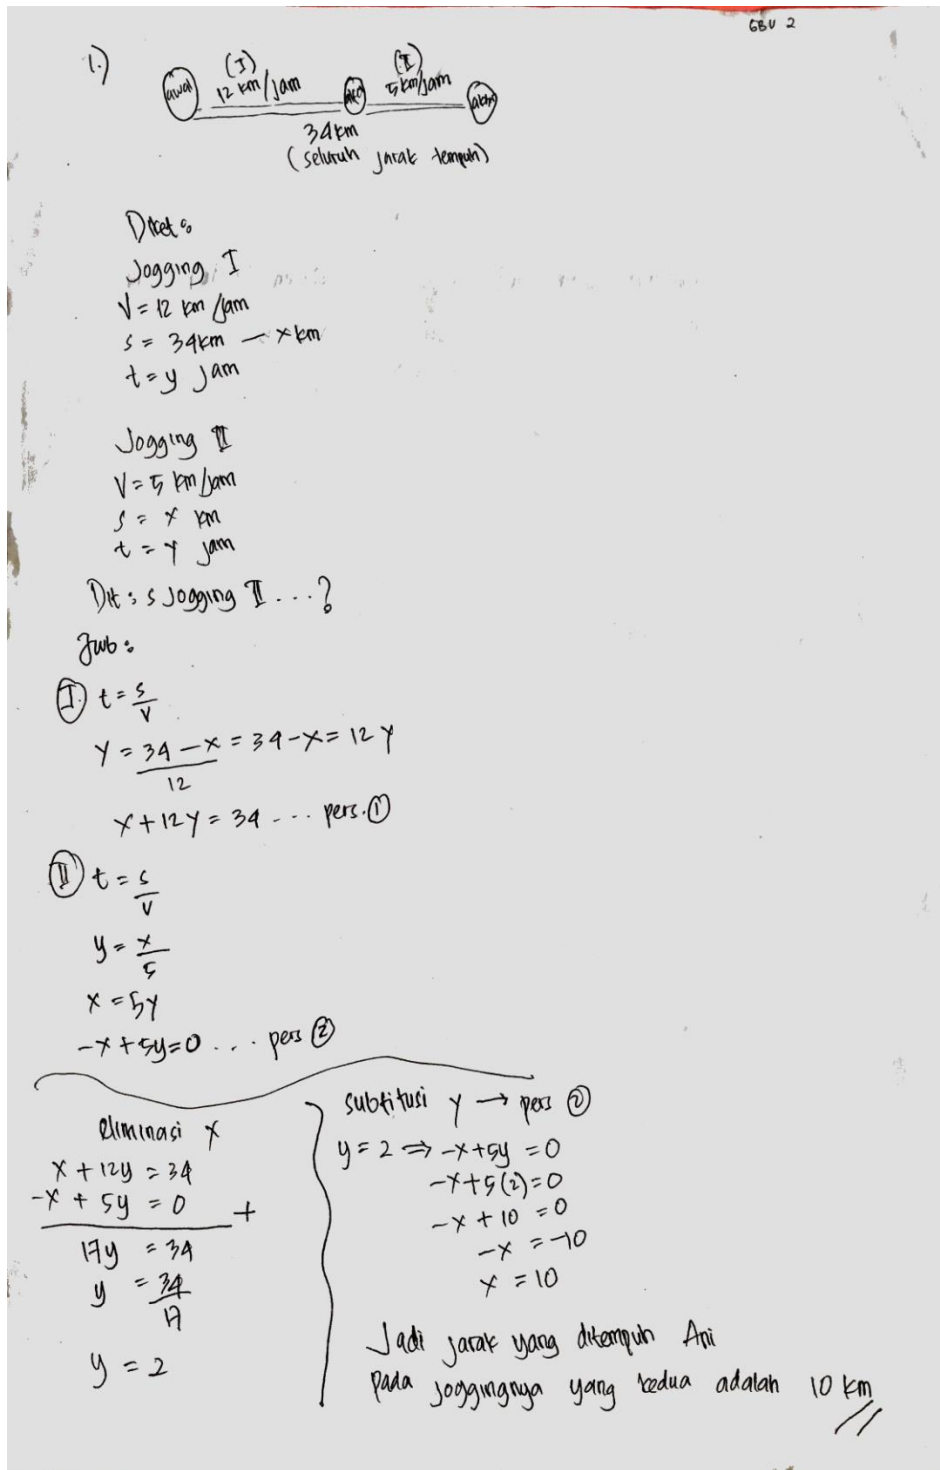 GBU 2
1.)
(I) (II)
awal 12 km/jam 5 km/jam akhir
34 km
(seluruh jarak tempuh)
Diket :
Jogging I
V = 12 km/jam
s = 34 km - x km
t = y jam
Jogging II
V = 5 km/jam
s = x km
t = y jam
Dit : s Jogging II ...?
Jwb :
(I) t = s/v
y = 34 - x/12 = 34 - x = 12 y
x + 12y = 34 ... pers. (1)
(II) t = s/v
y = x/5
x = 5y
-x + 5y = 0 ... pers (2)
eliminasi x
x + 12y = 34
-x + 5y = 0 +
17y = 34
y = 34/17
y = 2
subtitusi y → pers (2)
y = 2 ⇒ -x + 5y = 0
-x + 5(2) = 0
-x + 10 = 0
-x = -10
x = 10
Jadi jarak yang ditempuh Ani
pada joggingnya yang kedua adalah 10 km //